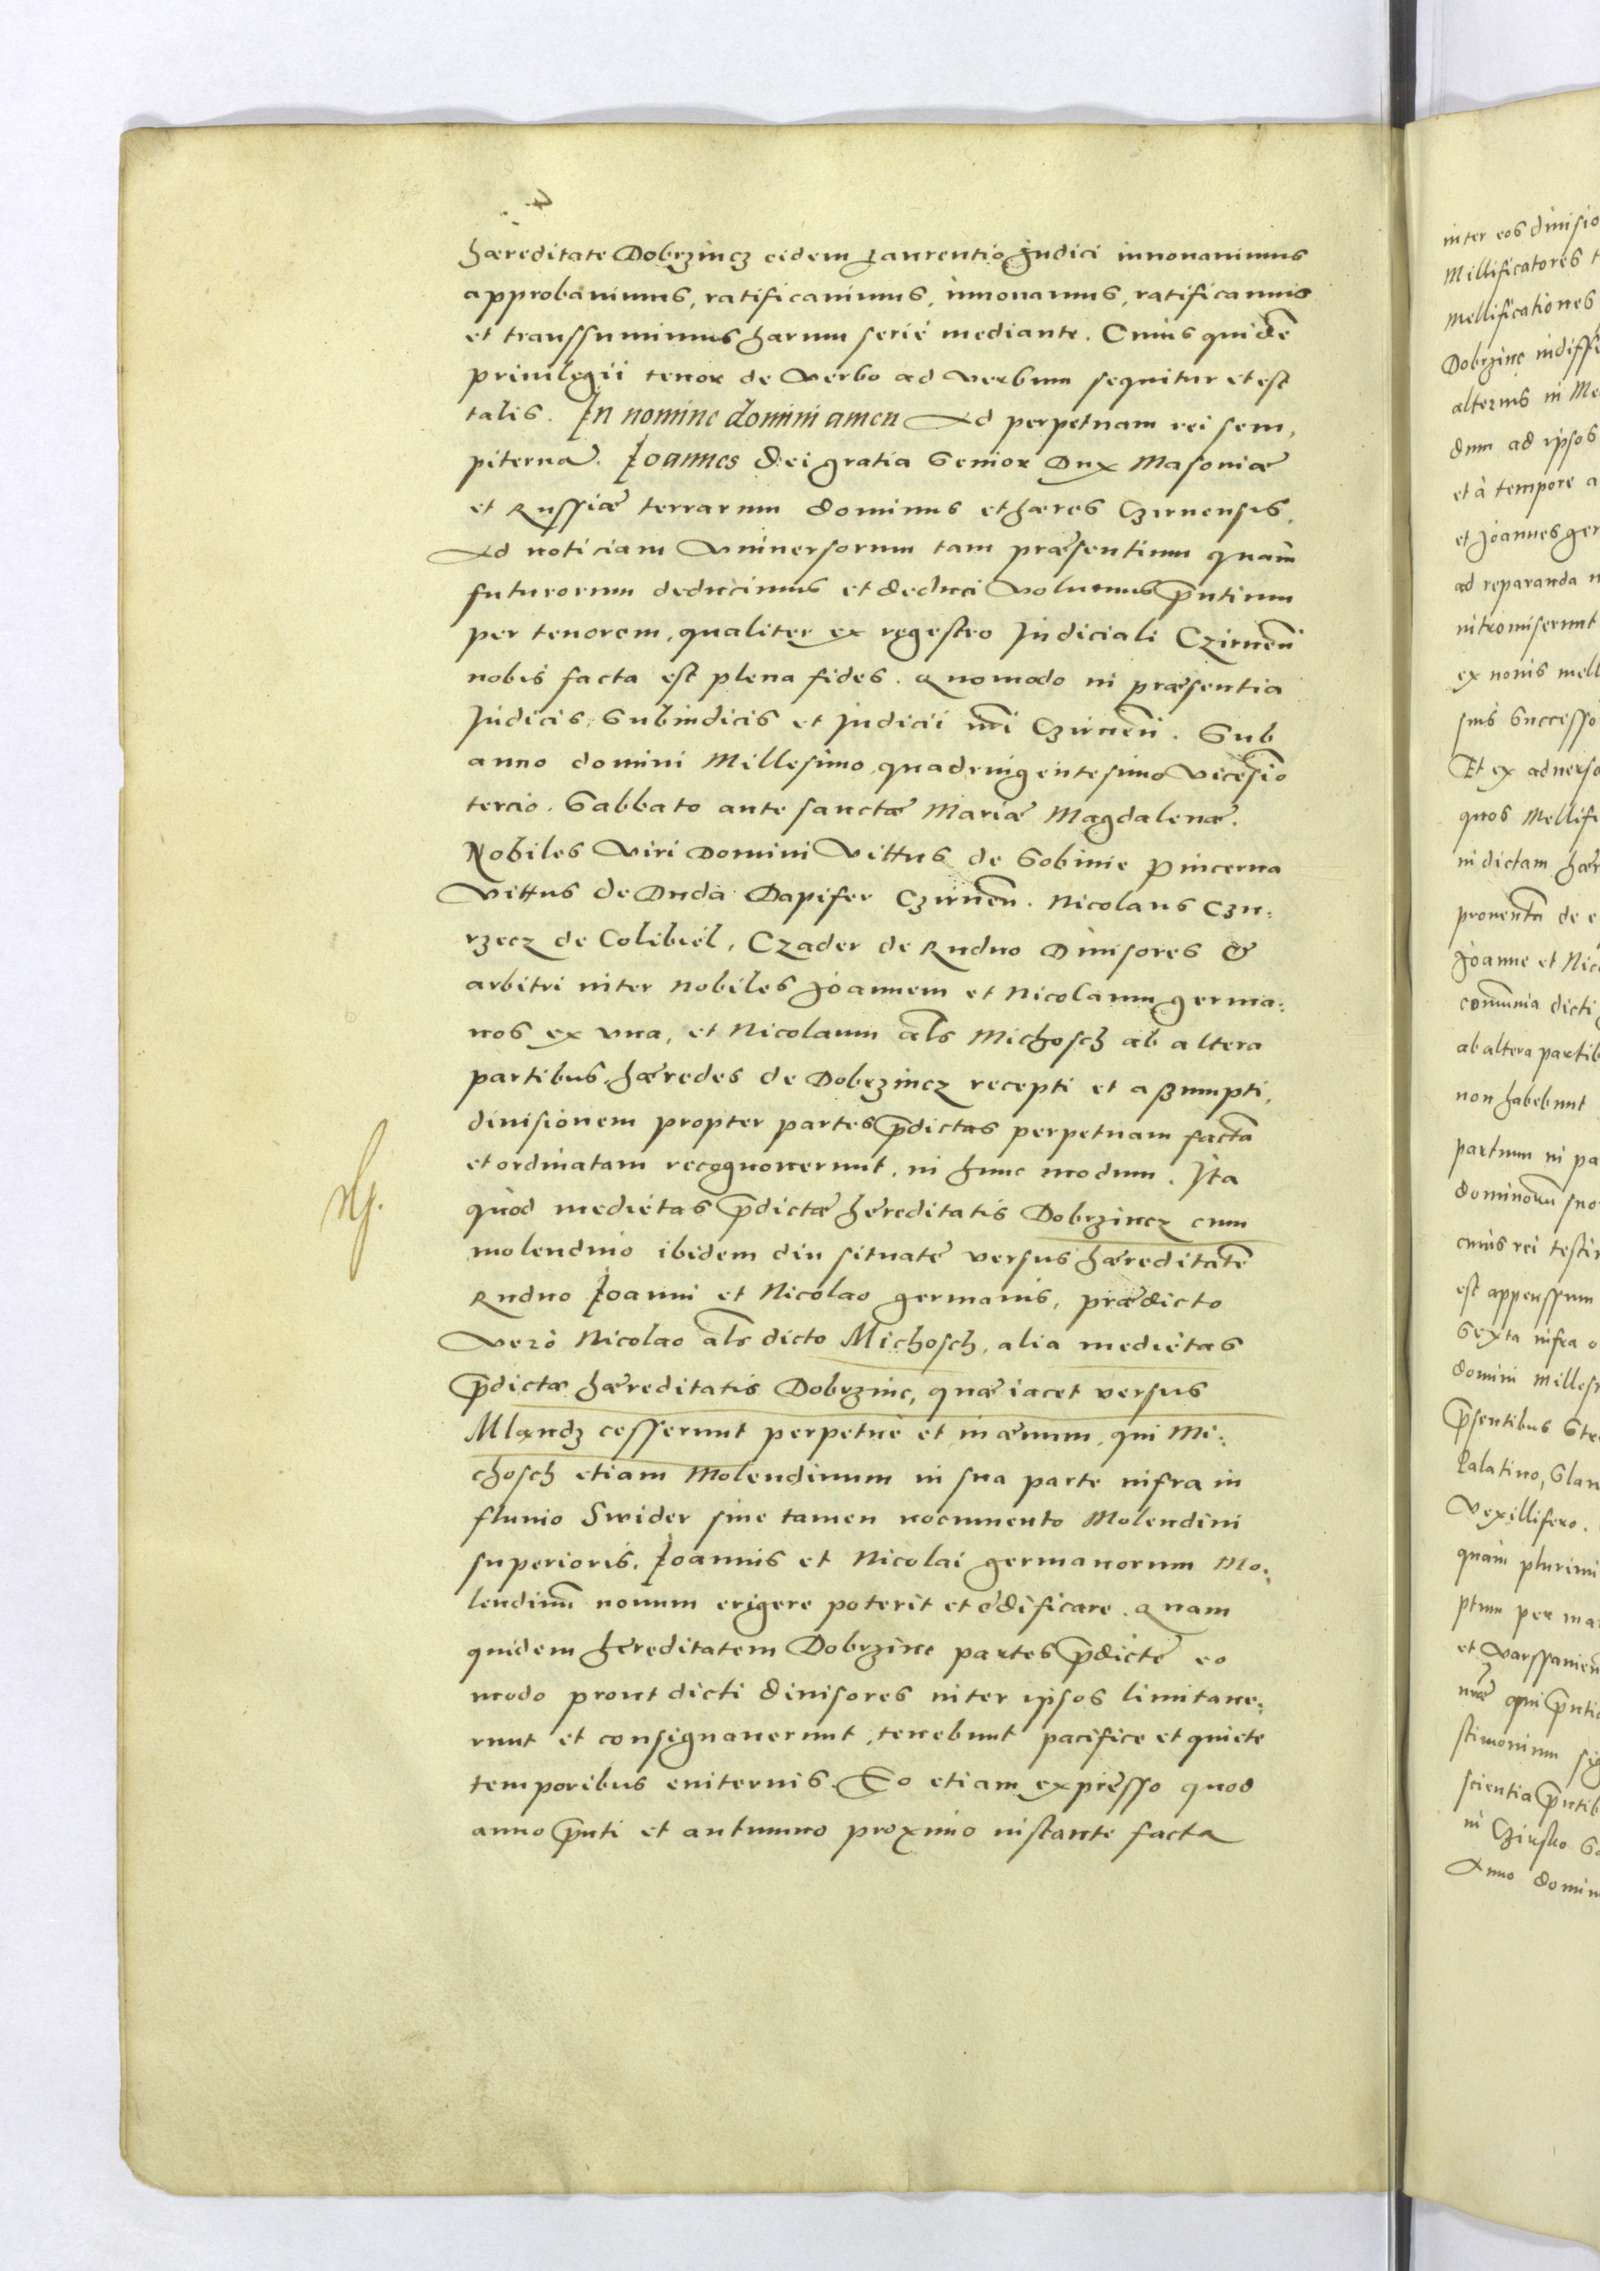 hæreditate Dobrzincz eidem Laurentio Judici innovavimus
approbavimus, ratificavimus, innovamus, ratificamus
et transsumimus harum serie mediante. Cuius quidẽ
privilegii tenor de verbo ad verbum sequitur et est
talis. In nomine domini amen Ad perpetuam rei sem,
piterna. Joannes dei gratia Senior Dux Masoviæ
et Russiæ terrarum dominus et hæres Czirnensis.
Ad noticiam universorum tam præsentium quàm
futurorum deducimus et deduci volumus p̃ntium
per tenorem, qualiter ex regestro Judiciali Czirneñ
nobis facta est plena fides. Quomodo in præsentia
Judicis, Subiudicis et Judicii nr̃i Czirneñ. Sub
anno domini Millesimo quadringentesimo vicesĩo
tercio. Sabbato ante sanctæ Mariæ Magdalenæ.
Nobiles viri Domini Vittus de Sobinie Pincerna
Vittus de Duda Dapifer Czirneñ. Nicolaus Czu:
rzecz de Colibiel, Czader de Rudno Divisores &
arbitri inter Nobiles Joannem et Nicolaum germa:
nos ex una, et Nicolaum als̃ Michosch ab altera
partibus. hæredes de Dobrzincz recepti et assumpti,
divisionem propter partes p̃dictas perpetuam factã
et ordinatam recognoverunt, in hunc modum. Ita
quòd medietas p̃dictæ hereditatis Dobrzincz cum
molendino ibidem diu situate versus hæreditatẽ
Rudno Joanni et Nicolao germanis, prædicto
verò Nicolao als̃ dicto Michosch, alia medietas
p̃dictæ hæreditatis Dobrzinc, quæ iacet versus
Mlandz cesserunt perpetue et in ævum, qui Mi:
chosch etiam Molendinum in sua parte infra in
fluvio Swider sine tamen nocumento Molendini
superioris. Joannis et Nicolai germanorum Mo:
lendinũ novum erigere poterit et edificare. Quam
quidem hereditatem Dobrzinc partes p̃dicte eo
modo prout dicti divisores inter ipsos limitave:
runt et consignaverunt, tenebunt pacifice et quiete
temporibus eviternis. Eo etiam expresso quod
anno p̃nti et autumno proximo instante facta
inter eos divisio
Mellificatores
mellificationes
Dobrzinc indiffe
alterius in Me
dum ad ipsos
et à tempore a
et Joannes ger
ad reparanda
intromiserunt
ex novis mell
suis Successo
Et ex adverso
quos Mellifi
in dictam hær
proventũ de e
Joanne et Nic
com̃unia dicti
ab altera partib
non habebunt
partium in pa
dominorũ suo
cuius rei testi
est appenssum
Sexta infra o
domini Milles
p̃sentibus St
Palatino, Slan
Vexillifero.
quàm plurimi
ptum per ma
et Varssavieñ
qui p̃nti
stimonium sig
scientia p̃ntib
in Czirsko Sa
Anno domin